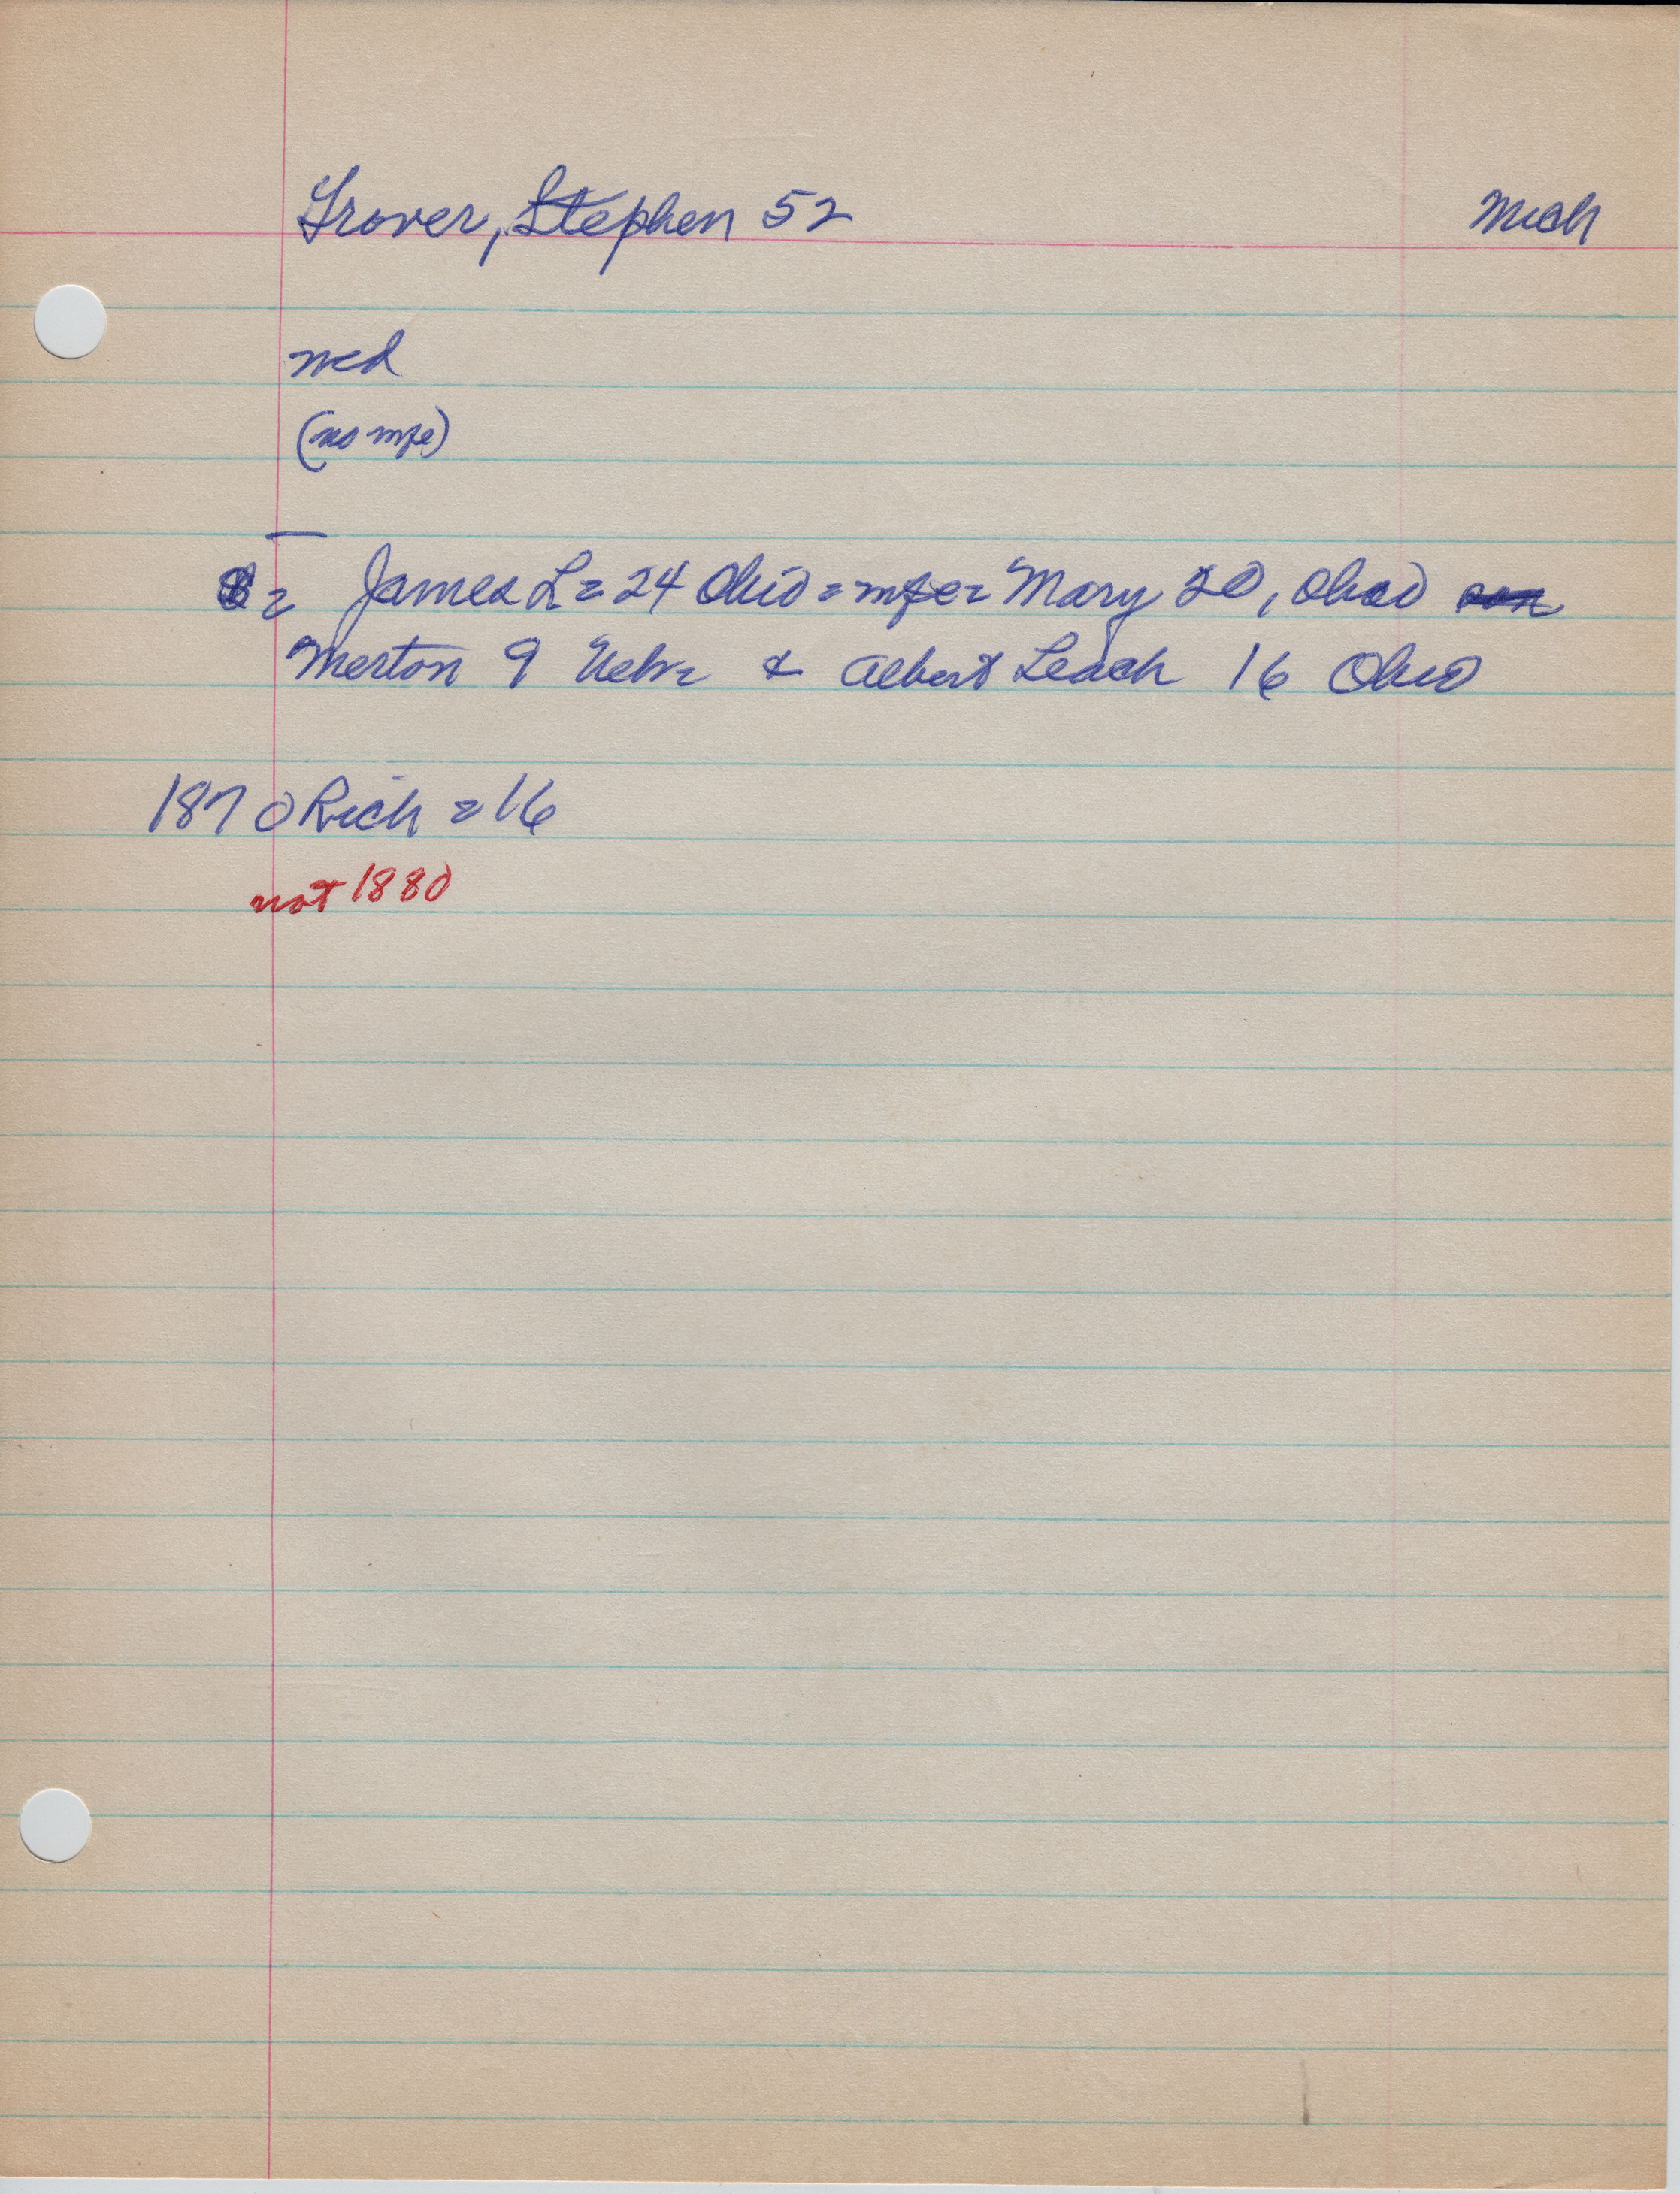 Grover, Stephen 52 Mich
(no wife)
= James L = 24 Ohio = wife = Mary 20, Ohio
Merton 9 Nebr & Albert Leach 16 Ohio
1870 Rich = 16
not 1880